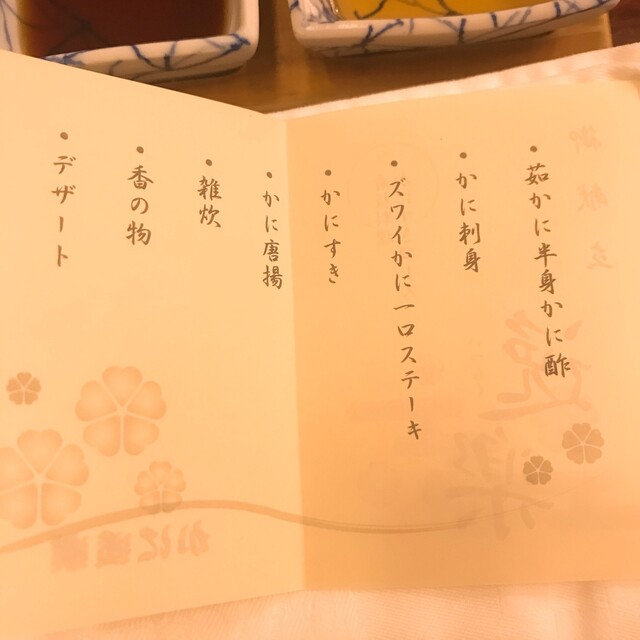 ・茹かに半身かに酢
・かに刺身
・ズワイかに一口ステーキ
・かにすき
・かに唐揚
・雑炊
・香の物
・デザート